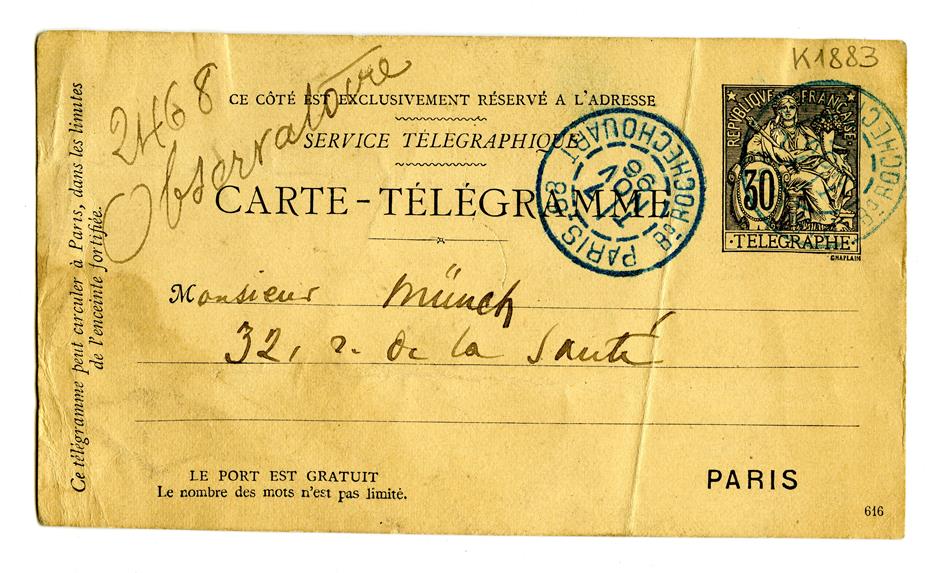 K1883
2468
Observatoire
CE CÔTÉ EST EXCLUSIVEMENT RÉSERVÉ A L'ADRESSE
SERVICE TÉLÉGRAPHIQUE
CARTE-TÉLÉGRAMME
RÉPUBLIQUE FRANÇAISE
30
TELEGRAPHE
CHAPLAIN
PARIS 28 Bd ROCHECHOUART
NOV 96
Bd ROCHEC
Monsieur Münch
32, r. de la Santé
Ce télégramme peut circuler à Paris, dans les limites
de l'enceinte fortifiée.
LE PORT EST GRATUIT
Le nombre des mots n'est pas limité.
PARIS
616